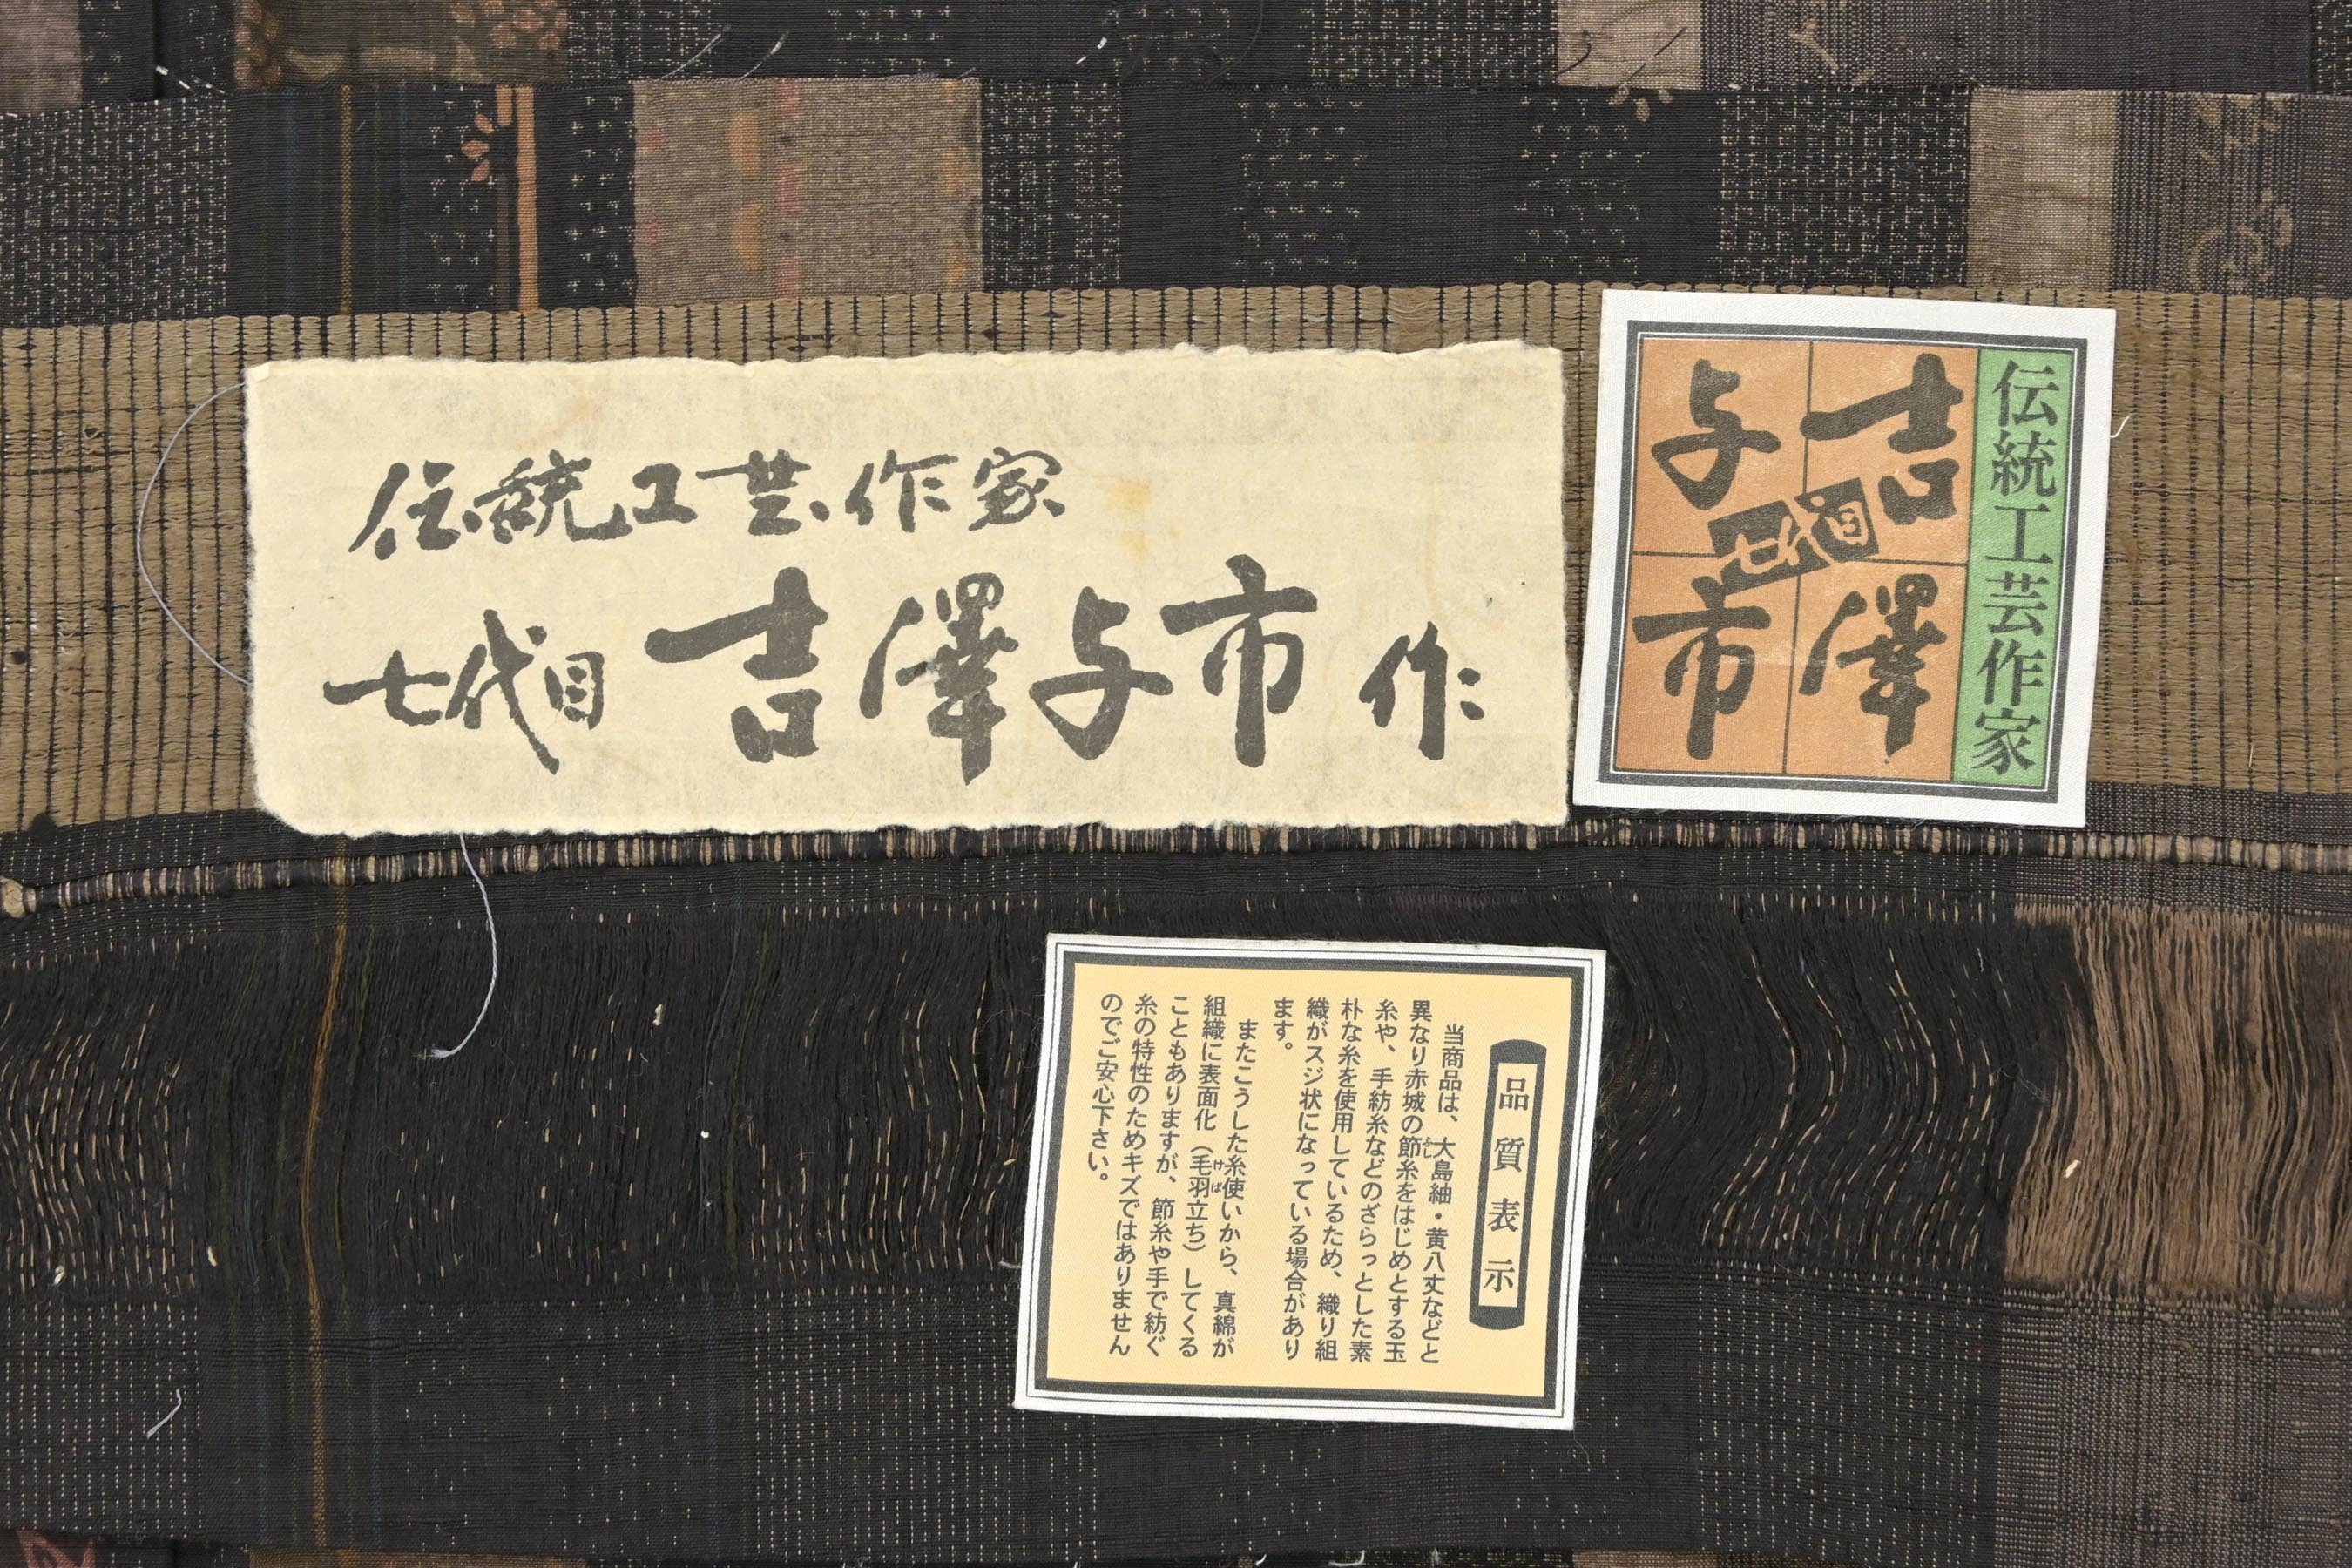 伝統工芸作家
七代目 吉澤与市 作
伝統工芸作家
吉澤
与市
七代目
品質表示
当商品は、大島紬・黄八丈などと
異なり赤城の節糸をはじめとする玉
糸や、手紡糸などのざらっとした素
朴な糸を使用しているため、織り組
織がスジ状になっている場合があり
ます。
またこうした糸使いから、真綿が
組織に表面化（毛羽立ち）してくる
こともありますが、節糸や手で紡ぐ
糸の特性のためキズではありません
のでご安心下さい。